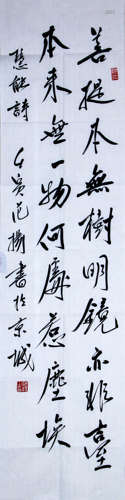 菩提本無樹明鏡亦非臺
本來無一物何處惹塵埃
慧能詩
書於京城